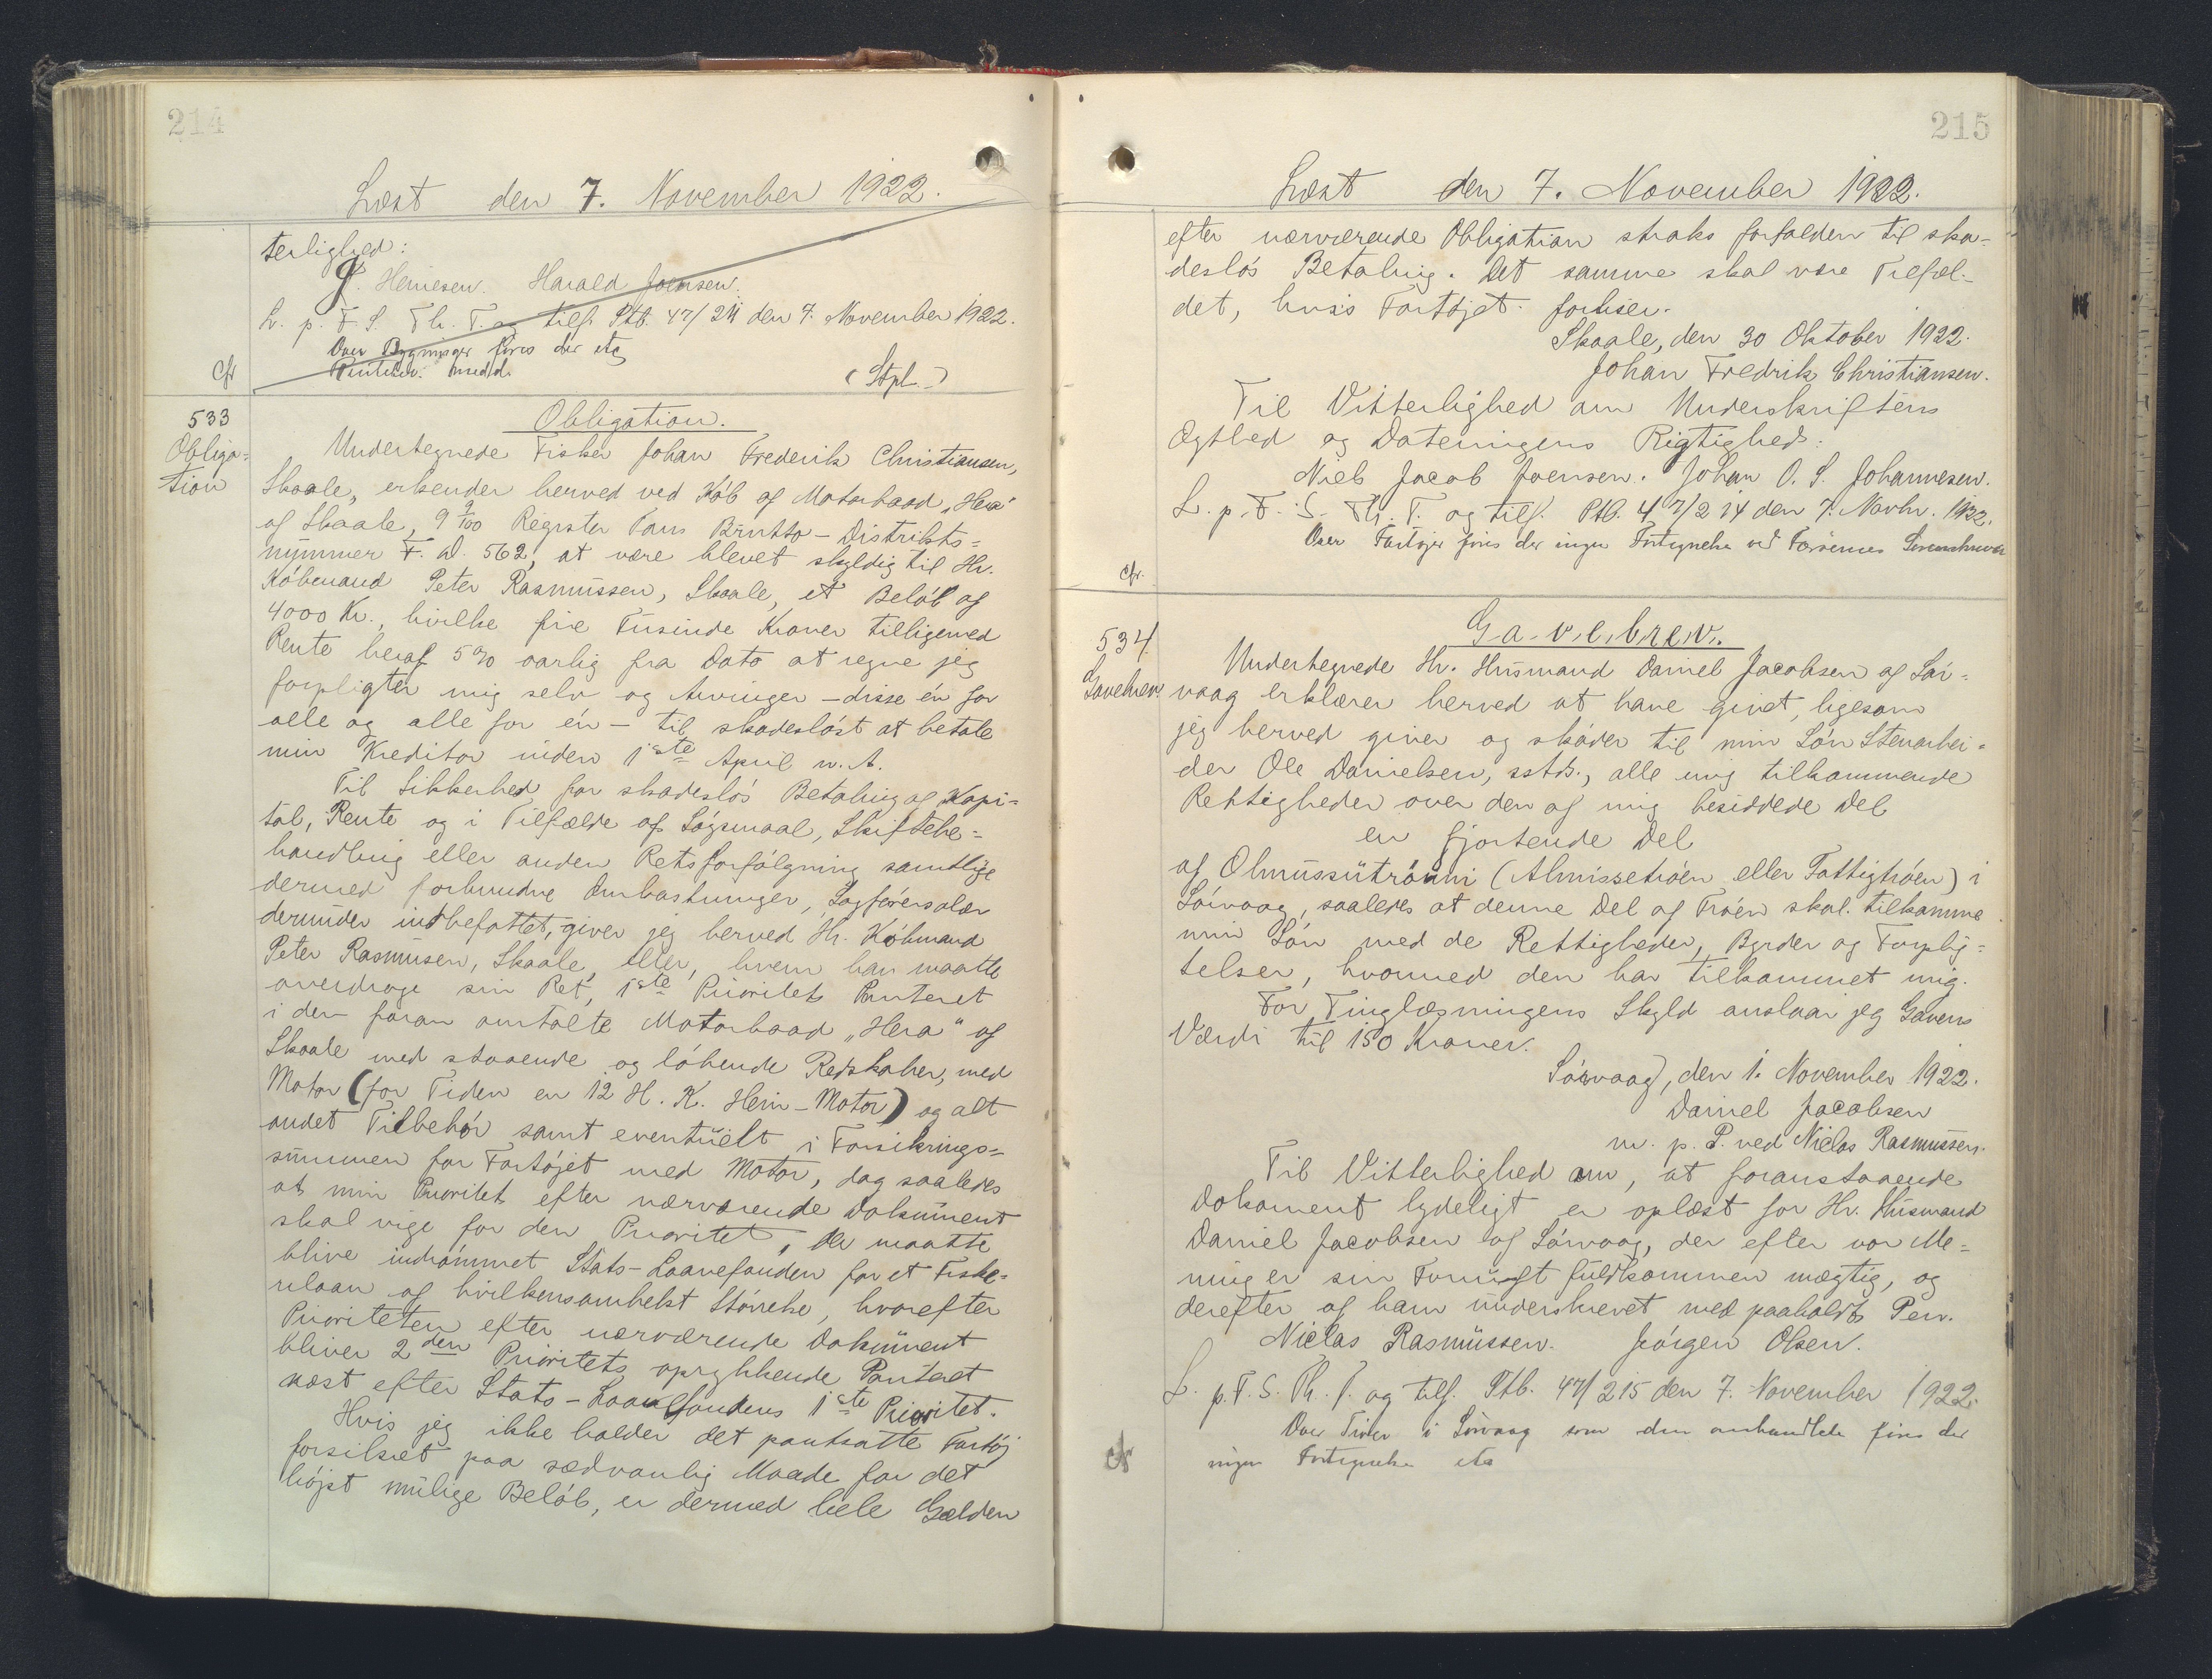 214
Læst den 7. November 1922.
terlighed:
J. Heinesen. Harald Joensen.
L. p. F. S. Th. T. og tilf. Ptb. 47/214 den 7. November 1922.
Over Bygninger fins der etc
cfr medd. (Stpl.)
533
Obliga=
tion
Obligation.
Undertegnede Fisker Johan Frederik Christiansen,
Skaale, erkender herved ved Køb af Motorbaad „Hera“
af Skaale, 9 9/100 Register Tons Brutto - Distrikts=
nummer F. D. 562, at være blevet skyldig til Hr.
Købmand Peter Rasmussen, Skaale, et Beløb af
4000 Kr., hvilke fire Tusinde Kroner tilligemed
Rente heraf 5% aarlig fra Dato at regne jeg
forpligter mig selv og Arvinger - disse én for
alle og alle for én - til skadesløst at betale
min Kreditor inden 1ste April n. A.
Til Sikkerhed for skadesløs Betaling af Kapi=
tal, Rente og i Tilfælde af Søgsmaal, Skiftebe=
handling eller anden Retsforfølgning samtlige
dermed forbundne Omkostninger, Sagførersalær
derunder indbefattet, giver jeg herved Hr. Købmand
Peter Rasmusen, Skaale, eller, hvem han maatte
overdrage sin Ret, 1ste Prioritets Panteret
i den foran omtalte Motorbaad „Hera“ af
Skaale med staaende og løbende Redskaber, med
Motor (for Tiden en 12 H. K. Hein-Motor) og alt
andet Tilbehør samt eventuelt i Forsikrings=
summen for Fartøjet med Motor, dog saaledes
at min Prioritet efter nærværende Dokument
skal vige for den Prioritet, der maatte
blive indrømmet Stats-Laanefonden for et Fiske=
rilaan af hvilkensomhelst Størrelse, hvorefter
Prioriteten efter nærværende Dokument
bliver 2den Prioritets oprykkende Panteret
næst efter Stats-Laanefondens 1ste Prioritet.
Hvis jeg ikke holder det pantsatte Fartøj
forsikret paa sædvanlig Maade for det
højst mulige Beløb, er dermed hele Gælden
215
Læst den 7. November 1922.
efter nærværende Obligation straks forfalden til ska=
desløs Betaling. Det samme skal være Tilfæl-
det, hvis Fartøjet forliser.
Skaale, den 30 Oktober 1922.
Johan Fredrik Christiansen.
Til Vitterlighed om Underskriftens
Ægthed og Dateringens Rigtighed:
Niels Jacob Joensen. Johan O. S. Johannesen.
L. p. F. S. Th. T. og tilf. Ptb. 47/214 den 7. Novbr. 1922.
Over Fartøjer fins der ingen Fortegnelse ved Færøernes Sorenskriveri
cfr.
534
Gavebrev.
Gavebrev.
Undertegnede Hr. Husmand Daniel Jacobsen af Sør=
vaag erklærer herved at have givet, ligesom
jeg herved giver og skøder til min Søn Stenarbei=
der Ole Danielsen, sstds., alle mig tilkommende
Rettigheder over den af mig besiddede Del
en fjortende Del
af Olmussutrøuni (Almissetrøen eller Fattigtrøen) i
Sørvaag, saaledes at denne Del af Trøen skal tilkomme
min Søn med de Rettigheder, Byrder og Forplig=
telser, hvormed den har tilkommet mig.
For Tinglæsningens Skyld anslaar jeg Gavens
Værdi til 150 Kroner.
Sørvaag, den 1. November 1922.
Daniel Jacobsen
m. p. P. ved Niclas Rasmussen.
Til Vitterlighed om, at foranstaaende
Dokument lydeligt er oplæst for Hr. Husmand
Daniel Jacobsen af Sørvaag, der efter vor Me=
ning er sin Fornuft fuldkommen mægtig, og
derefter af ham underskrevet med paaholdt Pen.
Niclas Rasmussen. Jørgen Olsen.
L. p. F. S. Th. T. og tilf. Ptb. 47/215 den 7. November 1922.
Over Trøer i Sørvaag som den omhandlede fins der
cfr ingen Fortegnelse etc